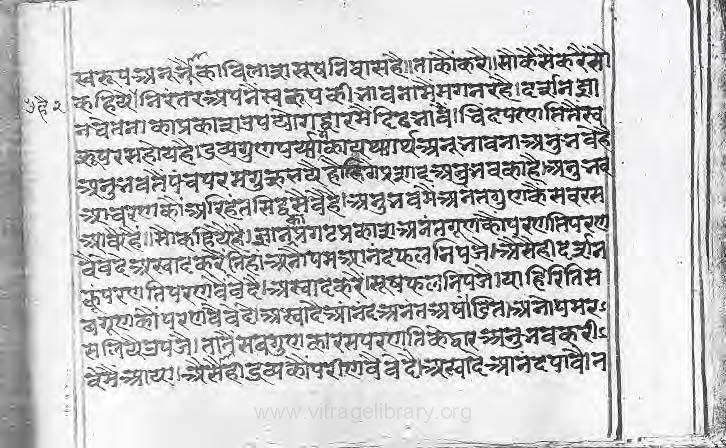 स्वरूप अनुभौ का विलास सुष निवास है॥ ताकौं करै॥ सो कैसैं करै सो
कहिये॥ निरंतर अपने स्वरूप की भावना मैं मगन रहै। दर्शन ज्ञा
न चेतना का प्रकाश उपयोग द्वार मै दिढ भावै। चिद परणति तैं स्व
रूप रस होय है। द्रव्य गुण पर्याय का यथार्थ अनुभवना अनुभव है
अनुभव तैं पंच परम गुरु भये है होंहिगे प्रसाद अनुभव का है। अनुभव
आचरण कौं अरिहंत सिद्ध सेवै है। अनुभव मैं अनंत गुण के सब रस
आवै है॥ सो कहिये है। ज्ञान प्रगट प्रकाश अनंत गुण कौ परणति परण
वै वेदै आस्वाद करै तिहां अनोपम आनंद फल निपजै। अैसै ही दर्शन
कूं परणति परणवै वेदै। आस्वाद करै। सुष फल निपजै। या हि रिति स
ब गुण कौ परणवै वेदै। आस्वादै आनंद अनंत अषंडित। अनोपम र
स लिये उपजै। तातै सब गुण का रस परणति के द्वार अनुभव करी
वे मैं आया। अैसै ही द्रव्य कौं परिणवै वेदै। आस्वादै आनंद पावै। त
www.vitragelibrary.org